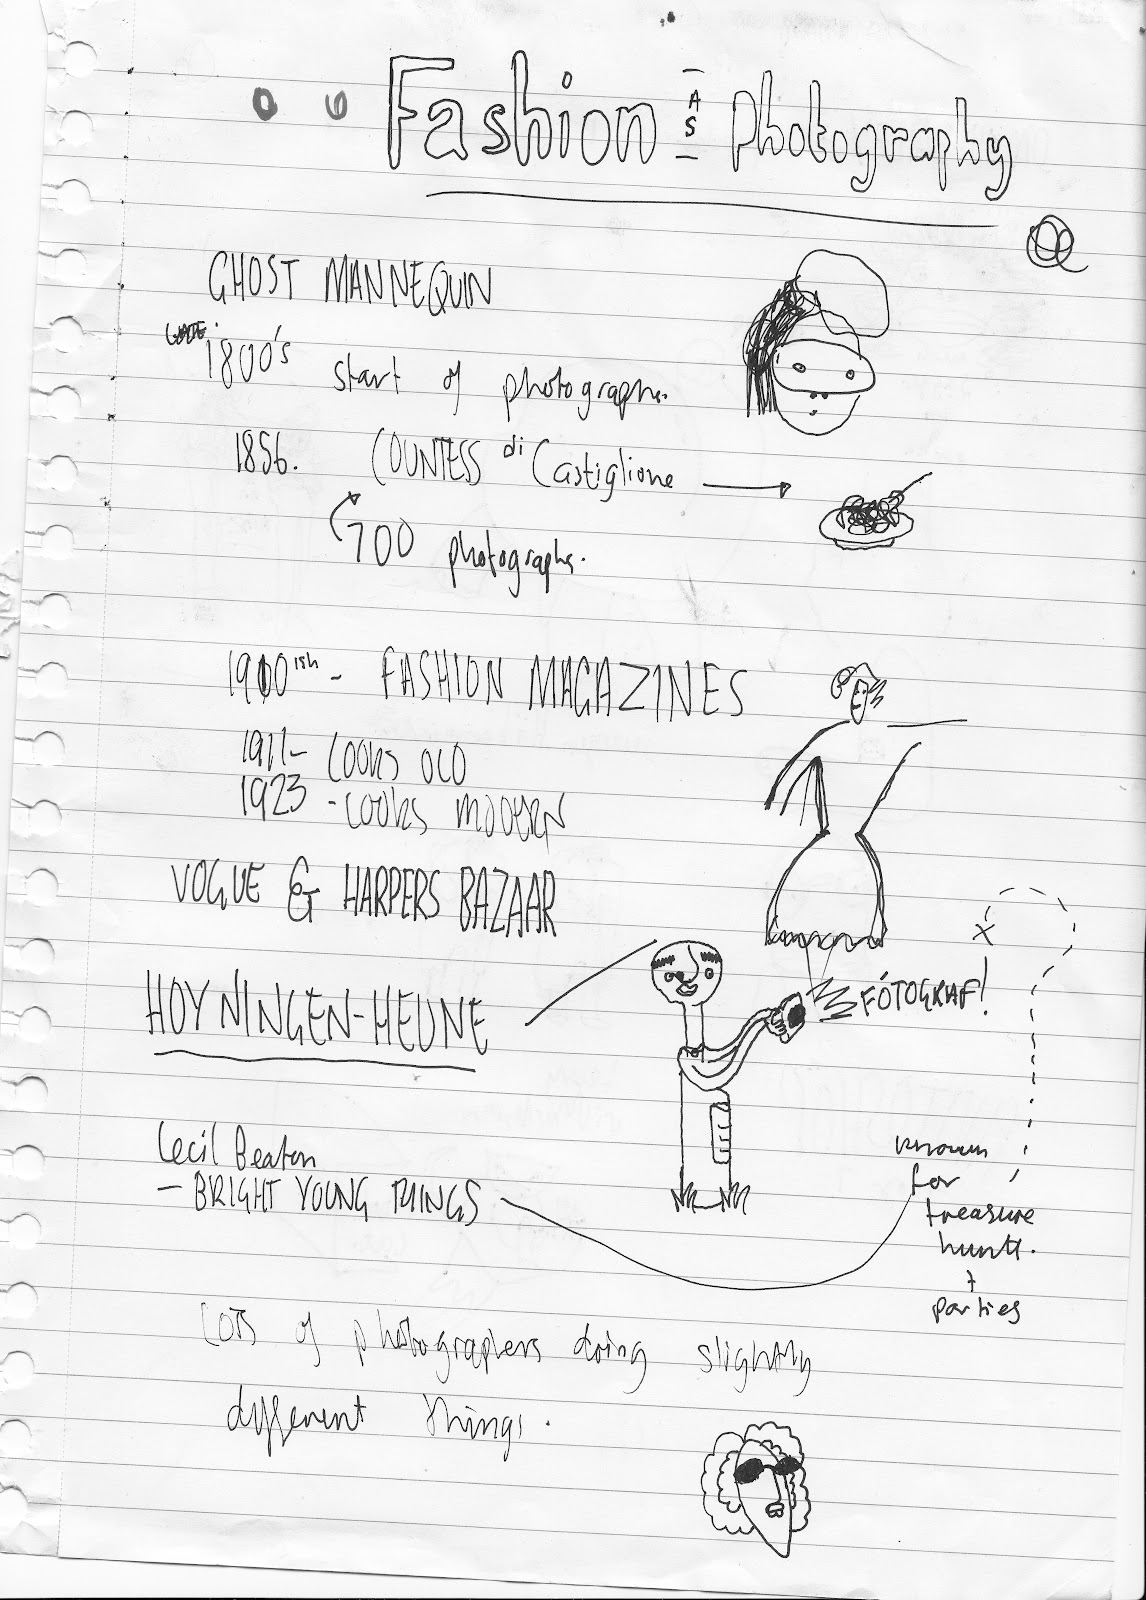 Fashion AS Photography
GHOST MANNEQUIN
LATE 1800's start of photographs.
1856. COUNTESS di Castiglione
700 photographs.
1900ish - FASHION MAGAZINES
1911 - LOOKS OLD
1923 - LOOKS MODERN
VOGUE & HARPERS BAZAAR
HOYNINGEN-HEUNE
FÓTOGRAF!
Cecil Beaton
- BRIGHT YOUNG THINGS
known
for
treasure
hunts.
+
parties
LOTS of photographers doing slightly
different things.